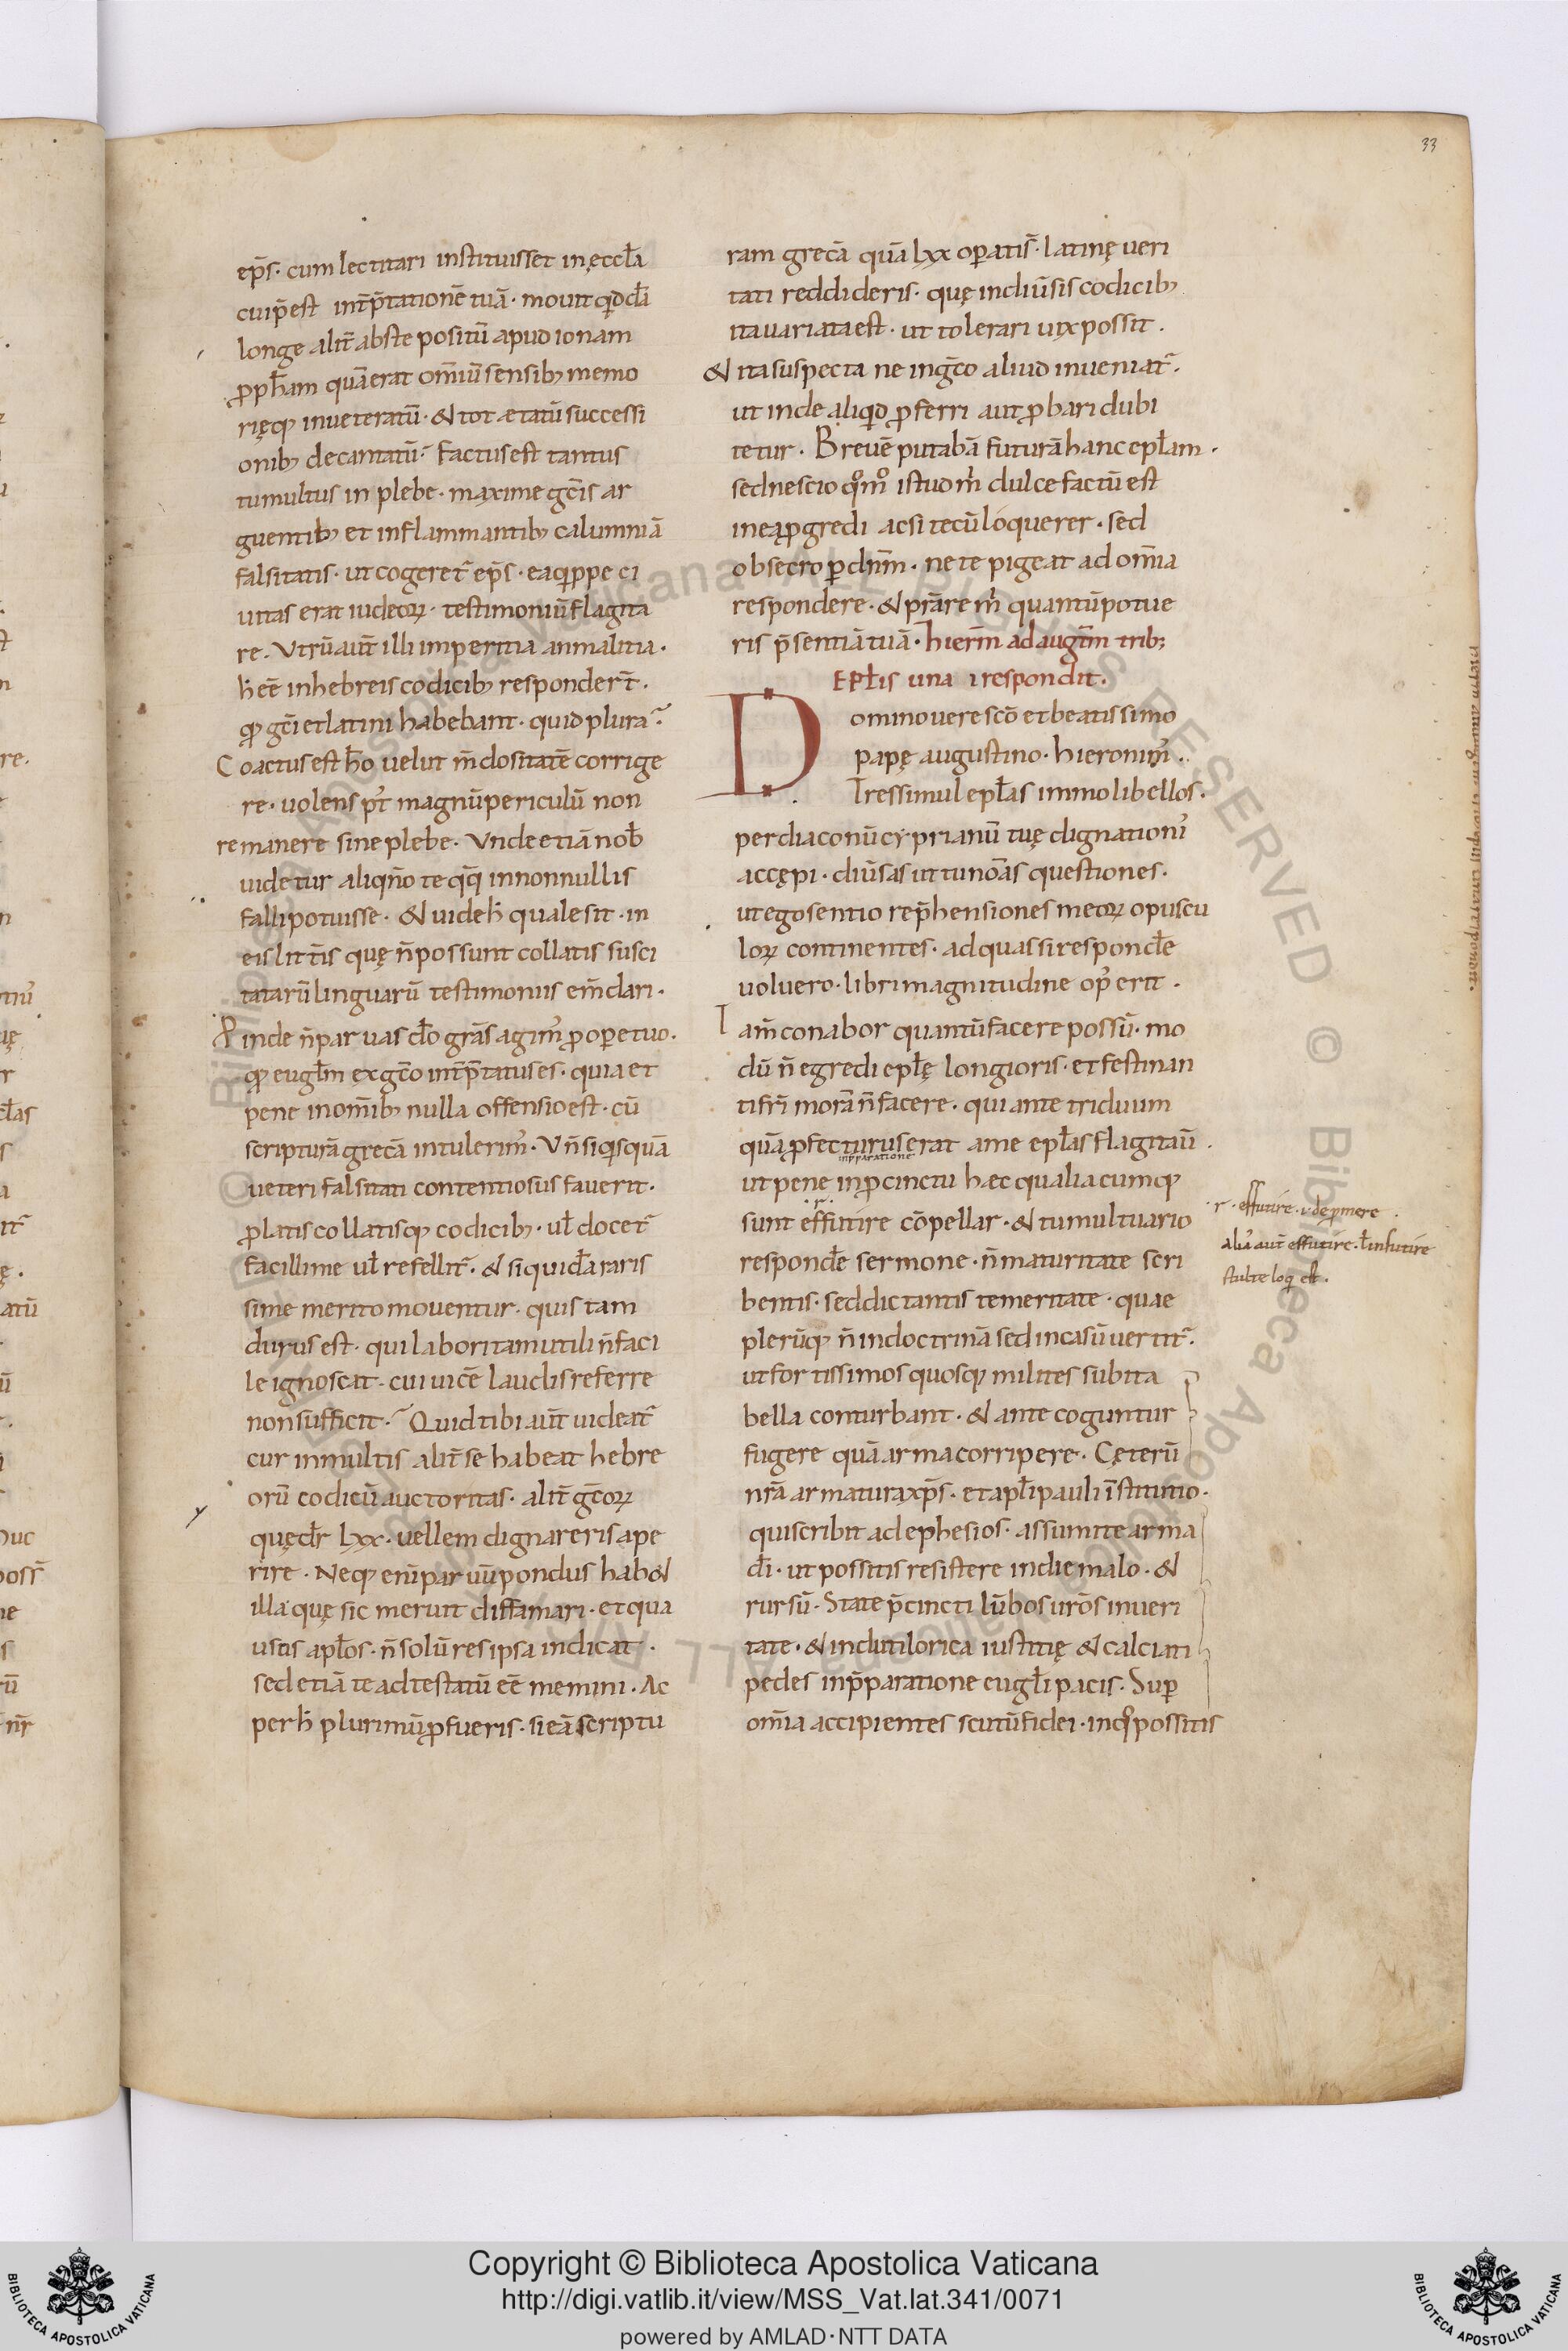 33
ep̄s · cum lectitari instituisset in ęccl̄a
cui p̄est int̄p̄tationē tuā · mouit qd̄dā
longe alit̄ abs te positū apud ionam
ꝓph̄am quā erat om̄iū sensib; memo
rięq; inueteratū · & tot ætatū successi
onib; decantatū · factus est tantus
tumultus in plebe · maxime gc̄is ar
guentib; et inflammantib; calumniā
falsitatis · ut cogeret̄ ep̄s · ea q̄ppe ci
uitas erat iudeoꝝ · testimoniū flagita
re · Vtrū aut̄ illi imperitia an malitia ·
h̄ eē in hebreis codicib; responder̄t ·
qđ gc̄i et latini habebant · quid plura ·
Coactus est h̄o uelut m̄dositatē corrige
re · uolens p̄t magnū periculū non
remanere sine plebe · Vnde etiā nob̄
uidetur aliqn̄o te q̄q̄ in nonnullis
falli potuisse · & uide h̄ quale sit · in
eis litt̄is quę n̄ possunt collatisusci
tatarū linguarū testimoniis em̄dari ·
Proinde n̄ paruas dō grās agim᷒ ꝓ opere tuo ·
qđ eugl̄m ex gc̄o int̄p̄tatus es · quia et
pene in om̄ib; nulla offensio est · cū
scripturā grecā intulerim᷒ · Vn̄ si q̄squā
ueteri falsitati contentiosus fauerit ·
ꝓlatis collatisq; codicib; · ul̄ docet̄
facillime ul̄ refellit̄ · & si quidā raris
sime merito mouentur · quis tam
durus est · qui labori tam utili n̄ faci
le ignoscat · cui uicē laudis referre
non sufficit · Quid tibi aut̄ uideat̄
cur in multis alit̄ se habeat hebre
orū codicū auctoritas · alit̄ gc̄oꝝ
quę dr̄ lxx · uellem dignareris ape
rire · Neq; eni᷒ paruū pondus hab&
illa quę sic meruit diffamari · et qua
usos apl̄os · n̄ solū res ipsa indicat ·
sed etiā te adtestatū eē memini · Ac
per h̄ plurimū ꝓfueris · si eā scriptu
ram grecā quā lxx oꝑatis̄ · latinę ueri
tati reddideris · quę in diūsis codicib;
ita uariata est · ut tolerari uix possit ·
& ita suspecta ne in gc̄o aliud inueniat̄ ·
ut inde aliqd̄ ꝓferri aut ꝓbari dubi
tetur · Breuē putabā futurā hanc epl̄am ·
sed nescio qͦmͦ istud m̄ dulce factū est
in ea ꝓgredi ac si tecū loquerer · sed
obsecro ꝑ dn̄m · ne te pigeat ad om̄ia
respondere · & prāre m̄ quantū potue
ris p̄sentiā tuā · hierm̄ ad augtm̄ trib;
Epl̄is una irespondit ·
Domino uere scō et beatissimo
papę augustino · hieronim᷒ ·
Tres simul epl̄as immo libellos ·
per diaconū cyprianū tuę dignationi᷒
accępi · diūsas ut tu noās questiones ·
ut ego sentio rep̄hensiones meoꝝ opuscu
loꝝ continentes · ad quas si respondē
uoluero · libri magnitudine op᷒ erit ·
Tam̄ conabor quantū facere possū · mo
dū n̄ egredi epl̄ę longioris · et festinan
ti fr̄i morā n̄ facere · qui ante triduum
quā ꝓfecturus erat a me epl̄as flagitaū ·
inp̄paratione
ut pene in ꝓcinctu hæc qualiacumq;
sunt effutire cōpellar · & tumultuario
r · effutire · i · dep̄mere
aliū aut̄ effutire · ł infutire
stulte loq̄ est ·
respondē sermone · n̄ maturitate scri
bentis · sed dictantis temeritate · quae
plerūq; n̄ in doctrinā sed in casū uertit̄ ·
ut fortissimos quosq; milites subita
bella conturbant · & ante coguntur
fugere quā arma corripere · Cęterū
nrā armatura xp̄s · et apl̄i pauli īstitutio ·
qui scribit ad ephesios · assumite arma
dī · ut possitis resistere in die malo · &
rursū · State p̄cincti lūbos urōs in ueri
tate · & induti lorica iustitię & calciati
pedes in p̄paratione eugl̄i pacis · Suꝑ
om̄ia accipientes scutū fidei · in qͦ possitis
Copyright © Biblioteca Apostolica Vaticana
http://digi.vatlib.it/view/MSS_Vat.lat.341/0071
powered by AMLAD·NTT DATA
BIBLIOTECA APOSTOLICA VATICANA
BIBLIOTECA APOSTOLICA VATICANA